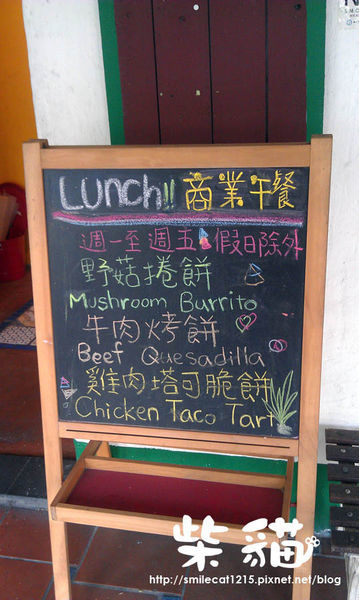 LUNCH!! 商業午餐
週一至週五 假日除外
野菇捲餅
Mushroom Burrito
牛肉烤餅
Beef Quesadilla
雞肉塔可脆餅
Chicken Taco Tart
柴貓
http://smilecat1215.pixnet.net/blog